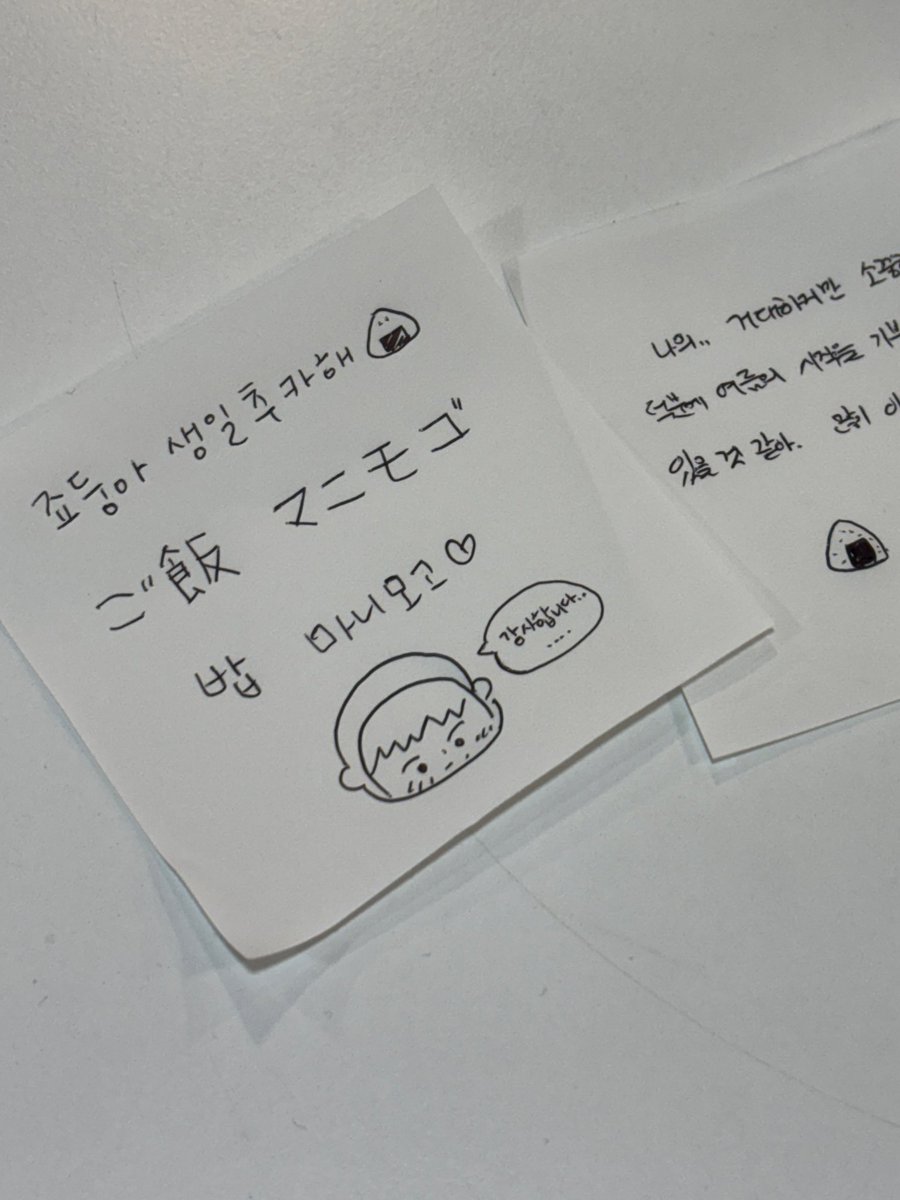 죠등아 생일추카해
ご飯 マニモゴ
밥 마니모고♡
감사합니다..
....
나의.. 거대하지만 소중
덕분에 여름의 시작을 기부
있을 것 같아.